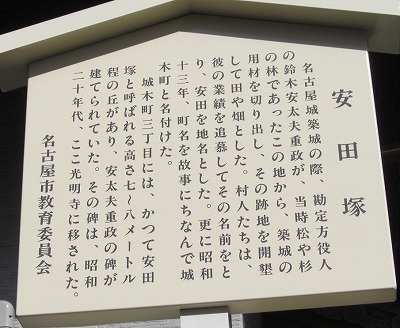 安田塚
名古屋城築城の際、勘定方役人
の鈴木安太夫重政が、当時松や杉
の林であったこの地から、築城の
用材を切り出し、その跡地を開墾
して田や畑とした。村人たちは、
彼の業績を追慕してその名前をと
り、安田を地名とした。更に昭和
十三年、町名を故事にちなんで城
木町と名付けた。
城木町三丁目には、かつて安田
塚と呼ばれる高さ七〜八メートル
程の丘があり、安太夫重政の碑が
建てられていた。その碑は、昭和
二十年代、ここ光明寺に移された。
名古屋市教育委員会